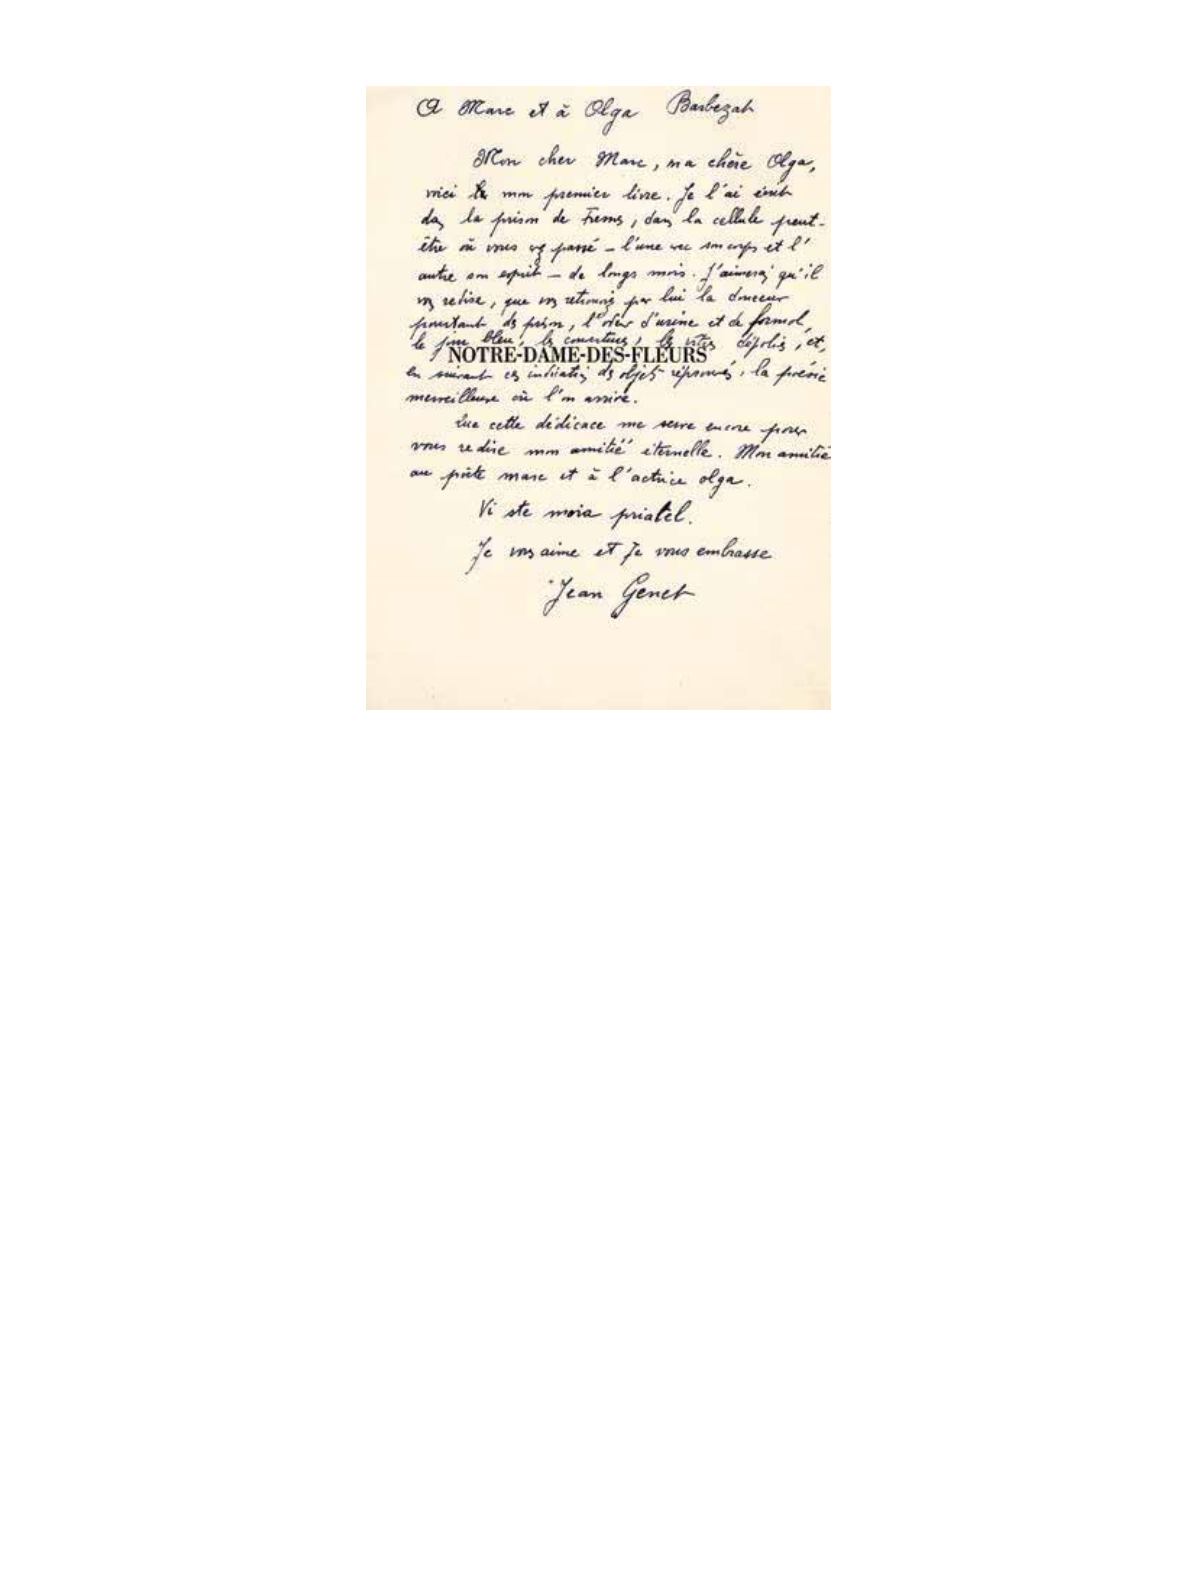 A Marc et à Olga Barbezat
Mon cher Marc, ma chère Olga,
voici mon premier livre. Je l'ai écrit
dans la prison de Fresnes, dans la cellule peut-
être où vous avez passé – l'une avec son corps et l'
autre son esprit – de longs mois. J'aimerais qu'il
vous redise, que vous retrouviez par lui la douceur
pourtant des prisons, l'odeur d'urine et de formol,
le jour bleu, les couvertures, les vitres dépolies, et,
NOTRE-DAME-DES-FLEURS
en suivant ces indications des objets réprouvés, la poésie
merveilleuse où l'on arrive.
Que cette dédicace me serve encore pour
vous redire mon amitié éternelle. Mon amitié
au poète marc et à l'actrice olga.
Vi ste moia priatel.
Je vous aime et Je vous embrasse
Jean Genet